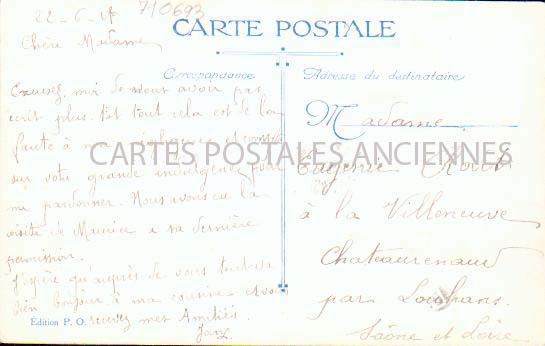 22-6-17
710693
CARTE POSTALE
Chère Madame
Correspondance
Excusez moi de vous avoir pas
écrit plus tôt tout cela est de la
faute à ma négligence et compte
sur votre grande indulgence pour
me pardonner. Nous avons eu la
visite de Maurice a sa dernière
permission.
J'espère qu'auprès de vous tout va
bien bonjour à ma cousine et vous
recevez mes Amitiés
Édition P. O.
Adresse du destinataire
Madame
Eugénie
à la Villeneuve
Chateaurenaud
par Louhans.
Saône et Loire
CARTES POSTALES ANCIENNES